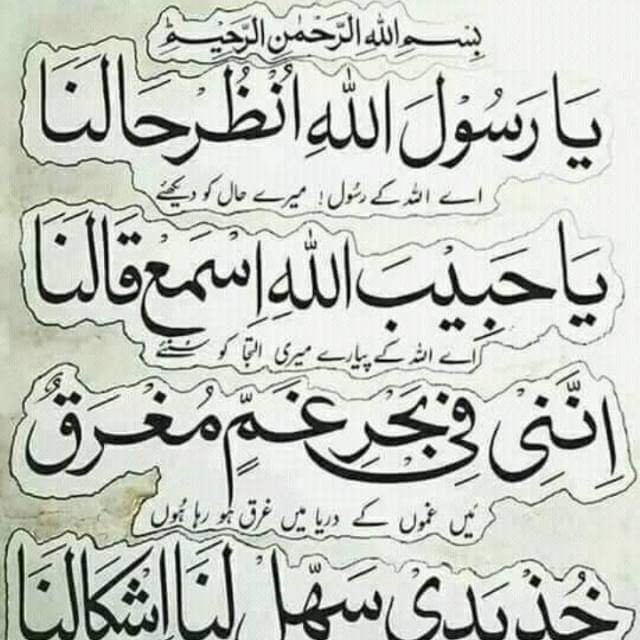 بِسْمِ اللهِ الرَّحْمٰنِ الرَّحِيْمِ
يَا رَسُوْلَ اللهِ اُنْظُرْ حَالَنَا
اے اللہ کے رسُول! میرے حال کو دیکھئے
يَا حَبِيْبَ اللهِ اِسْمَعْ قَالَنَا
اے اللہ کے پیارے میری التجا کو سُنئے
اِنَّنِيْ فِيْ بَحْرِ غَمٍّ مُغْرَقٌ
میں غموں کے دریا میں غرق ہو رہا ہُوں
خُذْ يَدِيْ سَهِّلْ لَنَا اَشْكَالَنَا